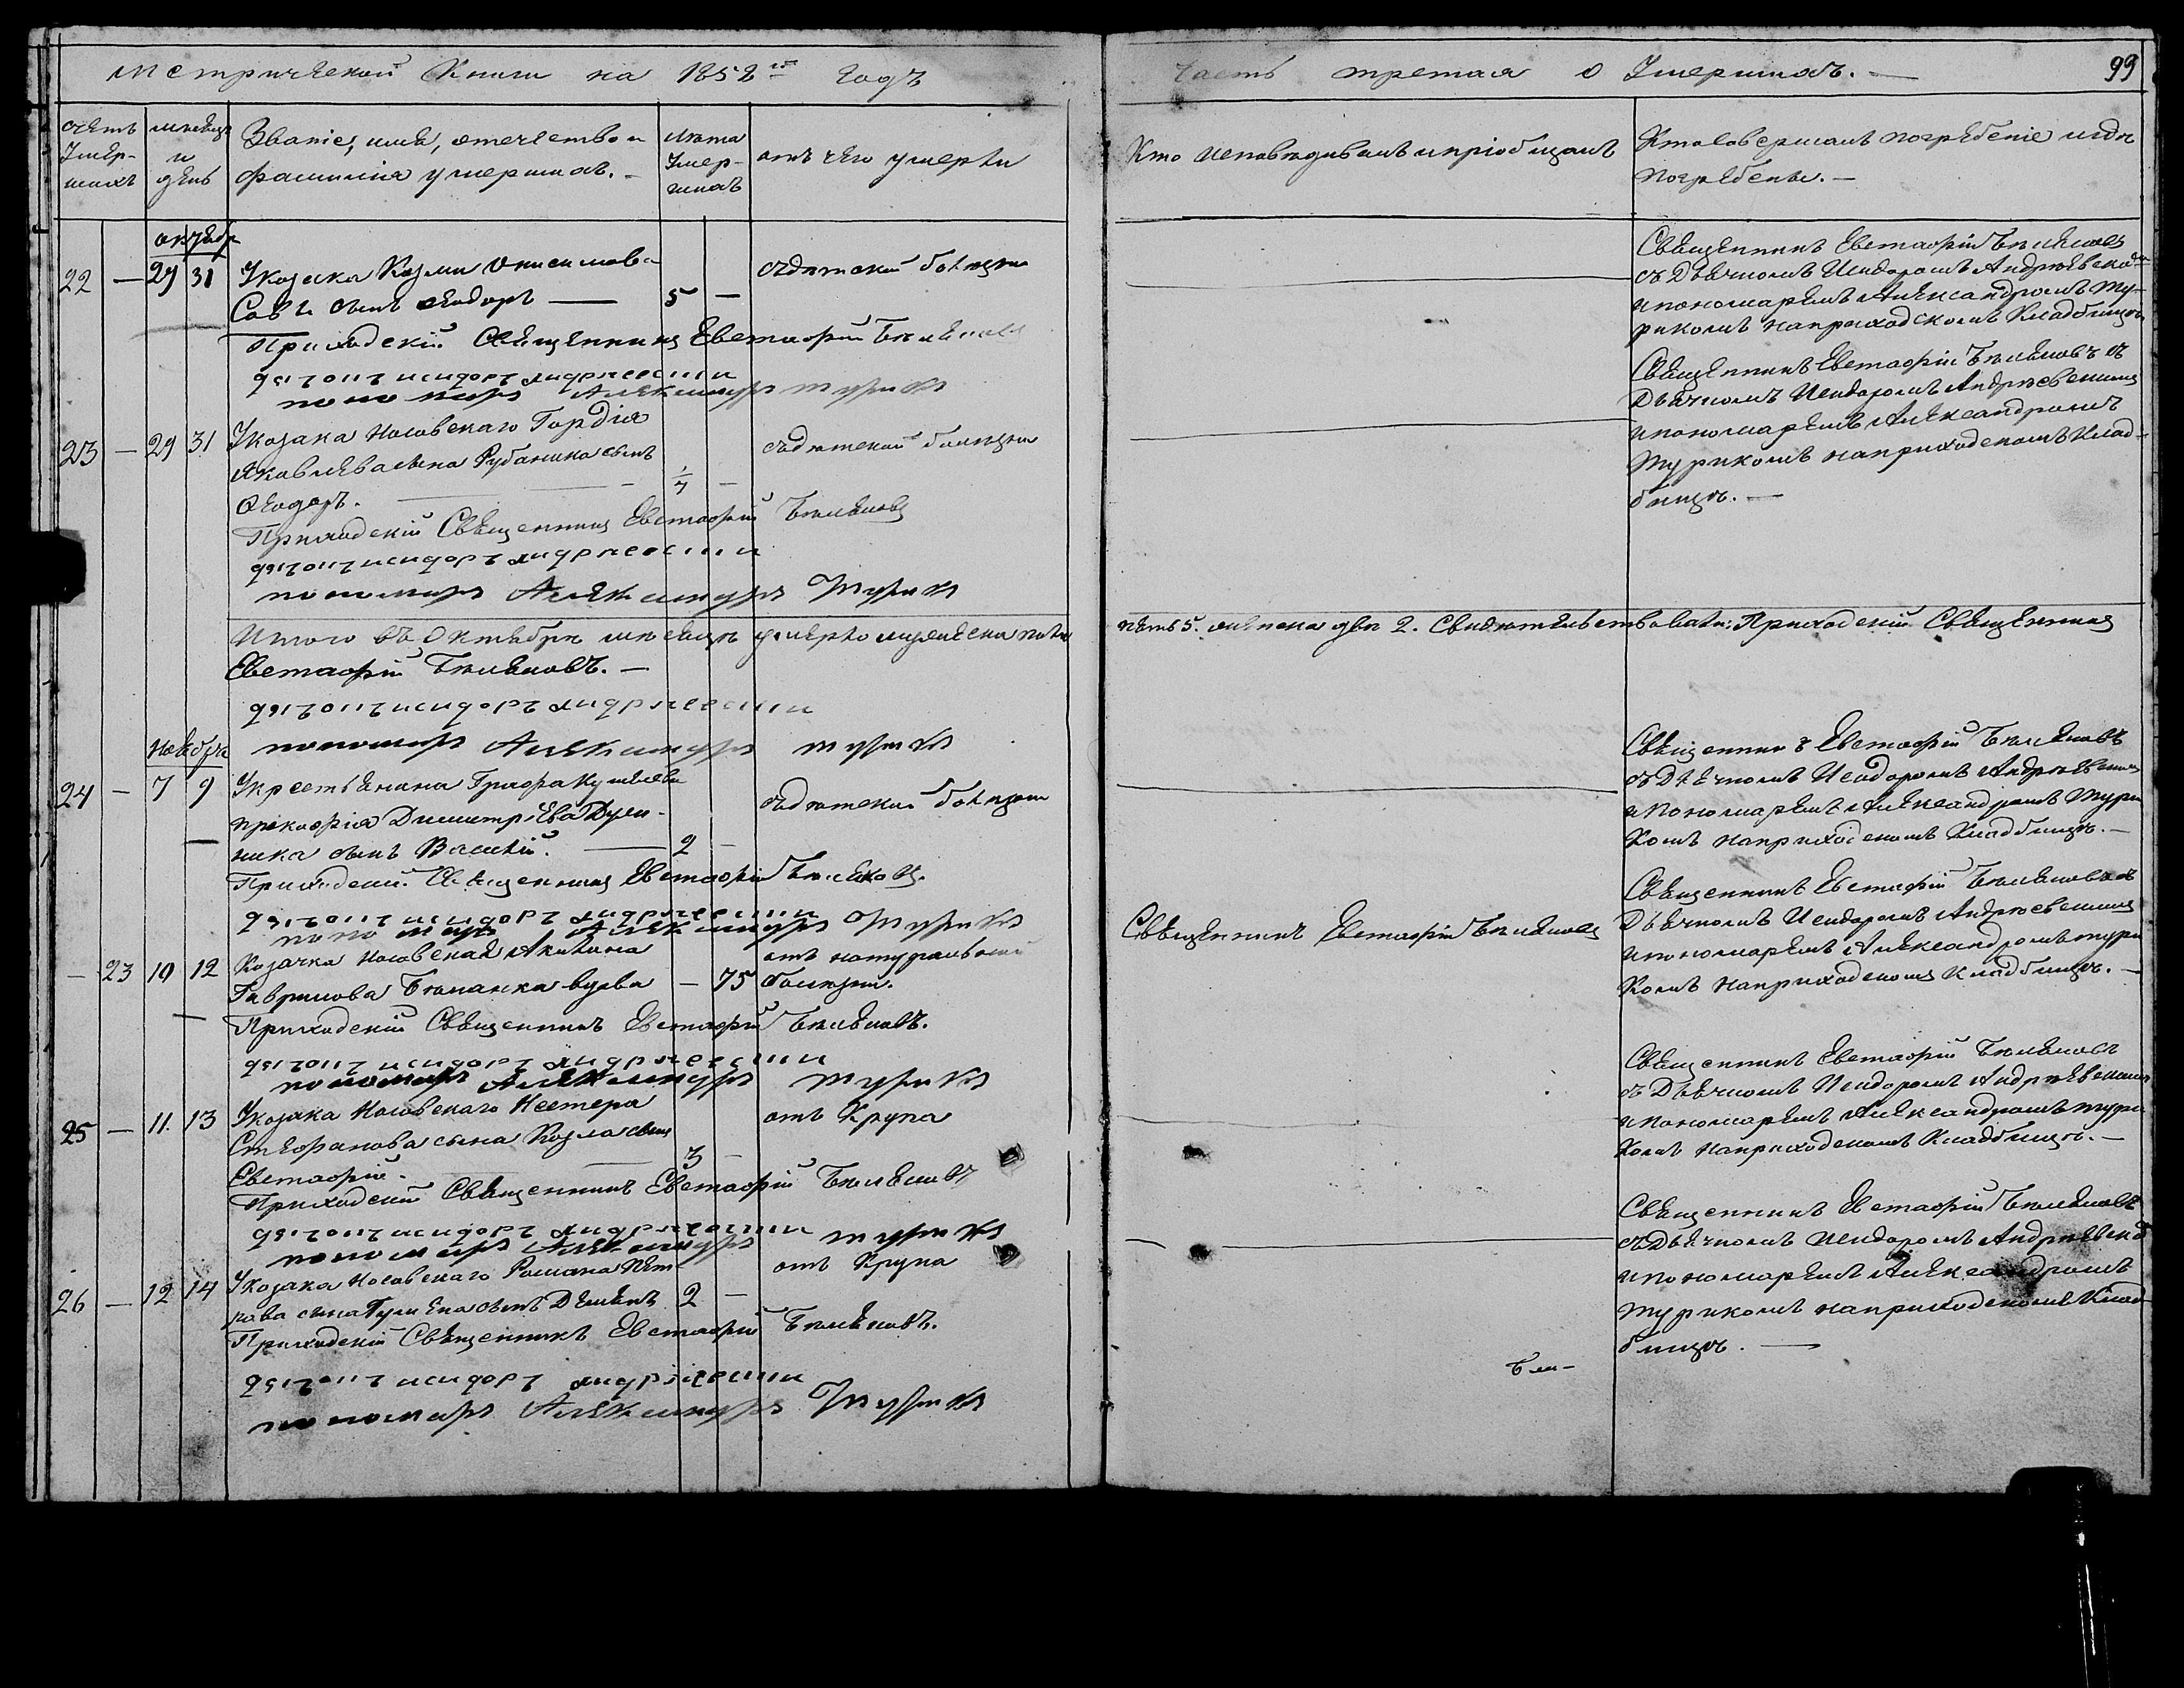 Метрической Книги на 1852й годъ
Часть третая о Умершихъ. —
99
счетъ Умер-шихъ
мѣсяцъ и день
Званіе, имя, отечество и фамилия умершихъ. —
лѣта Умер-шихъ
отъ чего умерли
Кто исповѣдывалъ и пріобщалъ
Кто совершалъ погребеніе и гдѣ погребены. —
октябр
22 — 29 31 Укозака Козми Онисимова
Сав сынъ Феодоръ — 5 —
сдѣтской болезни
Священникъ Евстафій Белякова
съ Дьячкомъ Исидоромъ Андріевско
и пономаремъ Александромъ Ту-
рикомъ наприходскомъ Кладбищѣ
Приходскій Священникъ Евстафій Беляковъ
дячокъ исидоръ андріевский
пономарь Александръ турикъ
23 — 29 31 Укозака Носовскаго Гордія
Яковлева сына Рубаника сынъ
Феодоръ. — 1/7 —
сдѣтской болезни
Священникъ Евстафій Беляковъ съ
Дьячкомъ Исидоромъ Андріевскимъ
и пономаремъ Александромъ
Турикомъ наприходскомъ Клад-
бищѣ. —
Приходскій Священникъ Евстафій Беляковъ
дячокъ исидоръ андріевский
пономарь Александръ Турикъ
Итого въ Октябрѣ мѣсяцѣ умерло мужеска пола
пять 5. женска два 2. Свидѣтельствовали: Приходскій Священникъ
Евстафій Беляковъ. —
дячокъ исидоръ андріевский
пономарь Александръ турикъ
Ноября
24 — 7 9 Укрестьянина Графа Кушелева
прокофія Димитріева Дуси-
ника сынъ Василій. — 2 —
сдѣтской болезни
Священникъ Евстафій Беляковъ
съ Дьячкомъ Исидоромъ Андріевским
и Пономаремъ Александромъ Тури
комъ наприходскомъ Кладбищѣ. —
Приходскій Священникъ Евстафій Беляковъ.
дячокъ исидоръ андріевский
пономарь Александръ Турикъ
— 23 10 12 Козачка Носовская Акилина
Гаврилова вдова — 75
отъ натуральной
болезни.
Священникъ Евстафій Беляковъ
Священникъ Евстафій Беляковъ съ
Дьячкомъ Исидоромъ Андріевскимъ
и пономаремъ Александромъ тури
комъ наприходскомъ кладбищѣ. —
Приходскій Священникъ Евстафій Беляковъ.
дячокъ исидоръ андріевский
пономарь Александръ турикъ
25 — 11. 13 Укозака Носовскаго Нестера
Стефанова сына Козла сынъ
Евстафій. — 3 —
отъ Крупа
Священникъ Евстафій Беляковъ
съ Дьячкомъ Исидоромъ Андріевскимъ
и пономаремъ Александромъ тури
комъ наприходскомъ Кладбищѣ. —
Приходскій Священникъ Евстафій Беляковъ
дячокъ исидоръ андріевский
пономарь Александръ турикъ
26 — 12 14 Укозака Носовскаго Романа Пет
рова сына сынъ Демянъ 2 —
отъ Крупа
Священникъ Евстафій Беляковъ
съ Дьячкомъ Исидоромъ Андріевско
и пономаремъ Александромъ
Турикомъ наприходскомъ Клад
бищѣ. —
Приходскій Священникъ Евстафій Беляковъ.
дячокъ исидоръ андріевский
пономарь Александръ Турикъ